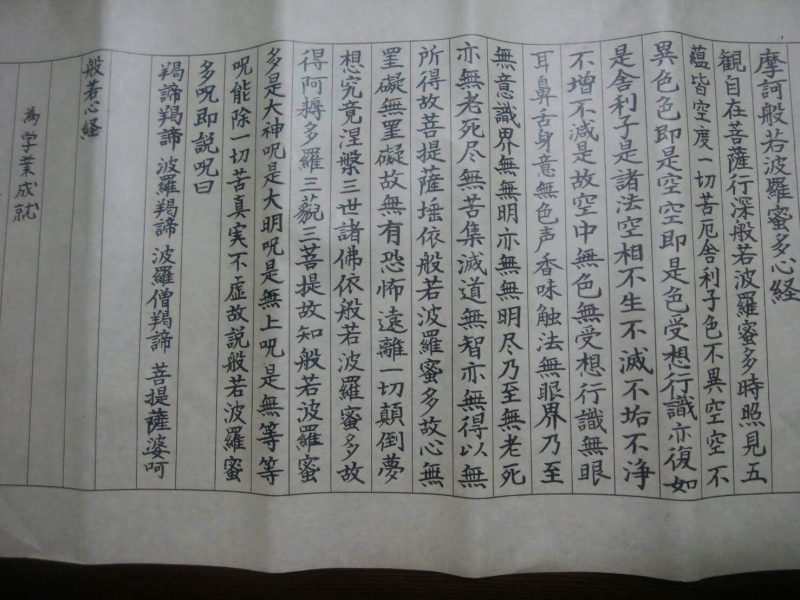 摩訶般若波羅蜜多心経
観自在菩薩行深般若波羅蜜多時照見五
蘊皆空度一切苦厄舎利子色不異空空不
異色色即是空空即是色受想行識亦復如
是舎利子是諸法空相不生不滅不垢不浄
不増不減是故空中無色無受想行識無眼
耳鼻舌身意無色声香味触法無眼界乃至
無意識界無無明亦無無明尽乃至無老死
亦無老死尽無苦集滅道無智亦無得以無
所得故菩提薩埵依般若波羅蜜多故心無
罣礙無罣礙故無有恐怖遠離一切顛倒夢
想究竟涅槃三世諸佛依般若波羅蜜多故
得阿耨多羅三藐三菩提故知般若波羅蜜
多是大神呪是大明呪是無上呪是無等等
呪能除一切苦真実不虚故説般若波羅蜜
多呪即説呪曰
羯諦羯諦 波羅羯諦 波羅僧羯諦 菩提薩婆呵
般若心経
為学業成就